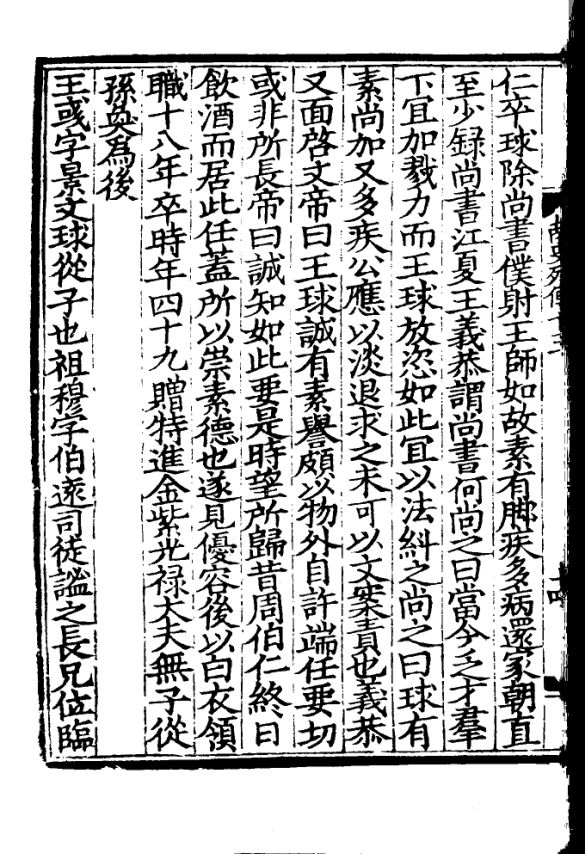 仁卒球除尚書僕射王師如故素有脚疾多病還家朝直
至少録尚書江夏王義恭謂尚書何尚之曰當今乏才羣
下宜加戮力而王球放恣如此宜以法糾之尚之曰球有
素尚加又多疾公應以淡退求之未可以文案責也義恭
又面啓文帝曰王球誠有素譽頗以物外自許端任要切
或非所長帝曰誠知如此要是時望所歸昔周伯仁終日
飲酒而居此任蓋所以崇素德也遂見優容後以白衣領
職十八年卒時年四十九贈特進金紫光禄大夫無子從
孫奐爲後
王彧字景文球從子也祖穆字伯遠司徒謐之長兄位臨